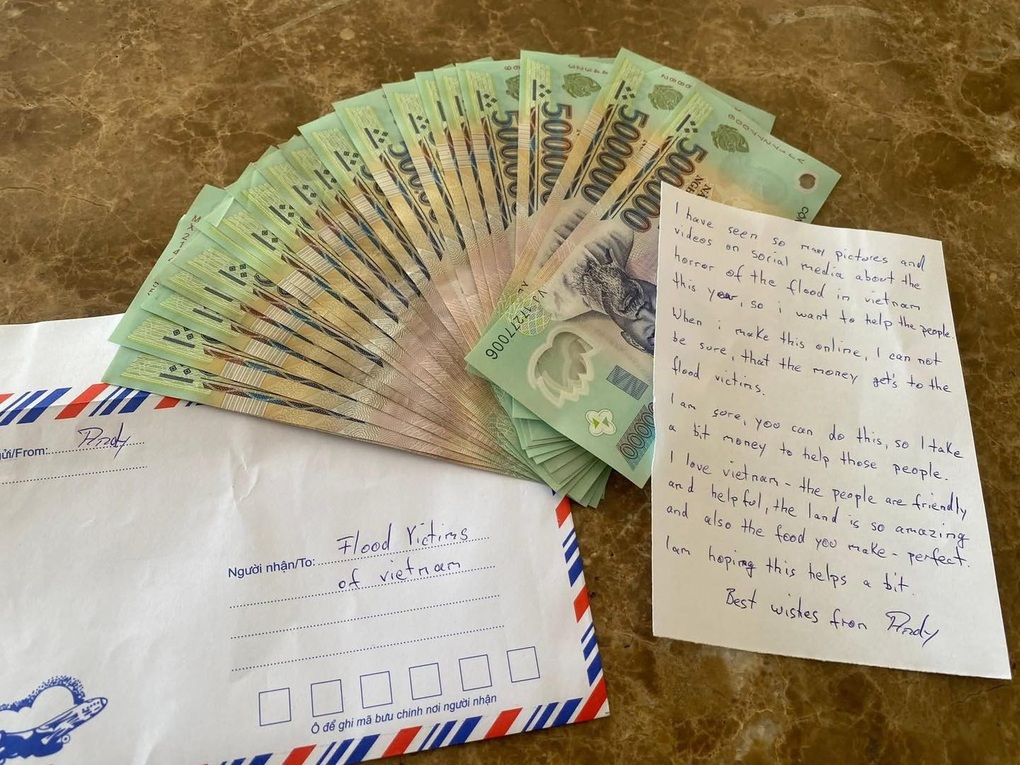 500000
500000
500000
500000
VJ 17277006
I have seen so many pictures and
videos on social media about the
horror of the flood in vietnam
this year, so i want to help the people.
When i make this online, I can not
be sure, that the money get's to the
flood victims.
I am sure, you can do this, so I take
a bit money to help those people.
I love vietnam - the people are friendly
and helpful, the land is so amazing
and also the food you make - perfect.
I am hoping this helps a bit.
Best wishes from Andy
ửi/From: Andy
Người nhận/To: Flood Victims
of vietnam
Ô để ghi mã bưu chính nơi người nhận